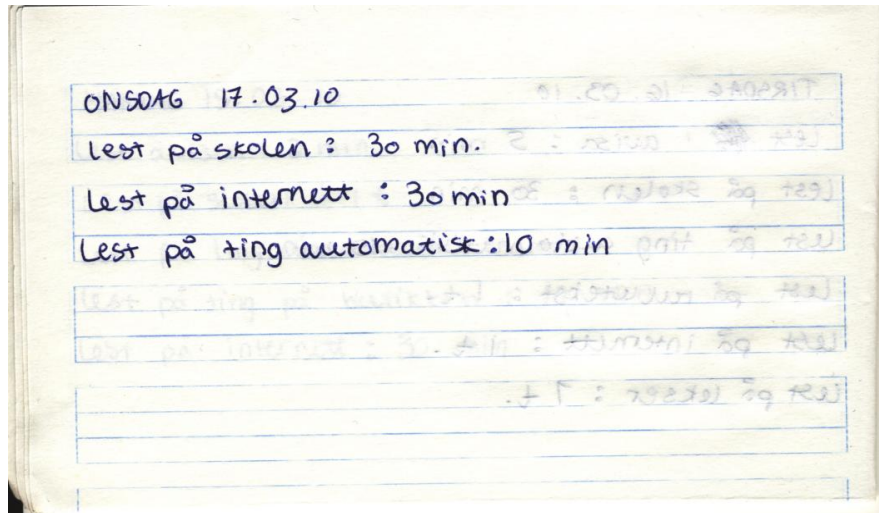 ONSDAG 17.03.10
Lest på skolen : 30 min.
Lest på internett : 30 min
Lest på ting automatisk : 10 min